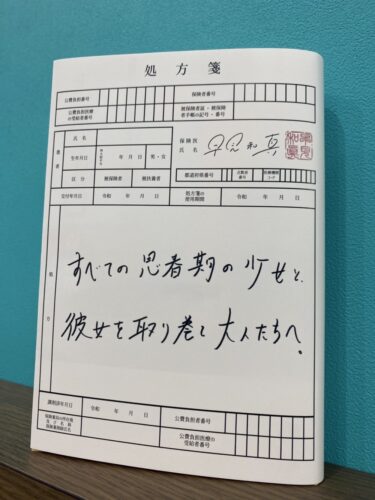 処方箋
公費負担者番号
保険者番号
公費負担医療の受給者番号
被保険者証・被保険者手帳の記号・番号
患者
氏名
生年月日
年 月 日 男・女
区分
被保険者
被扶養者
保険医氏名
早見和真
都道府県番号
点数表番号
医療機関コード
交付年月日
令和 年 月 日
処方箋の使用期間
令和 年 月 日
処方
すべての思春期の少女と、
彼女を取り巻く大人たちへ。
調剤済年月日
令和 年 月 日
公費負担者番号
公費負担医療の受給者番号